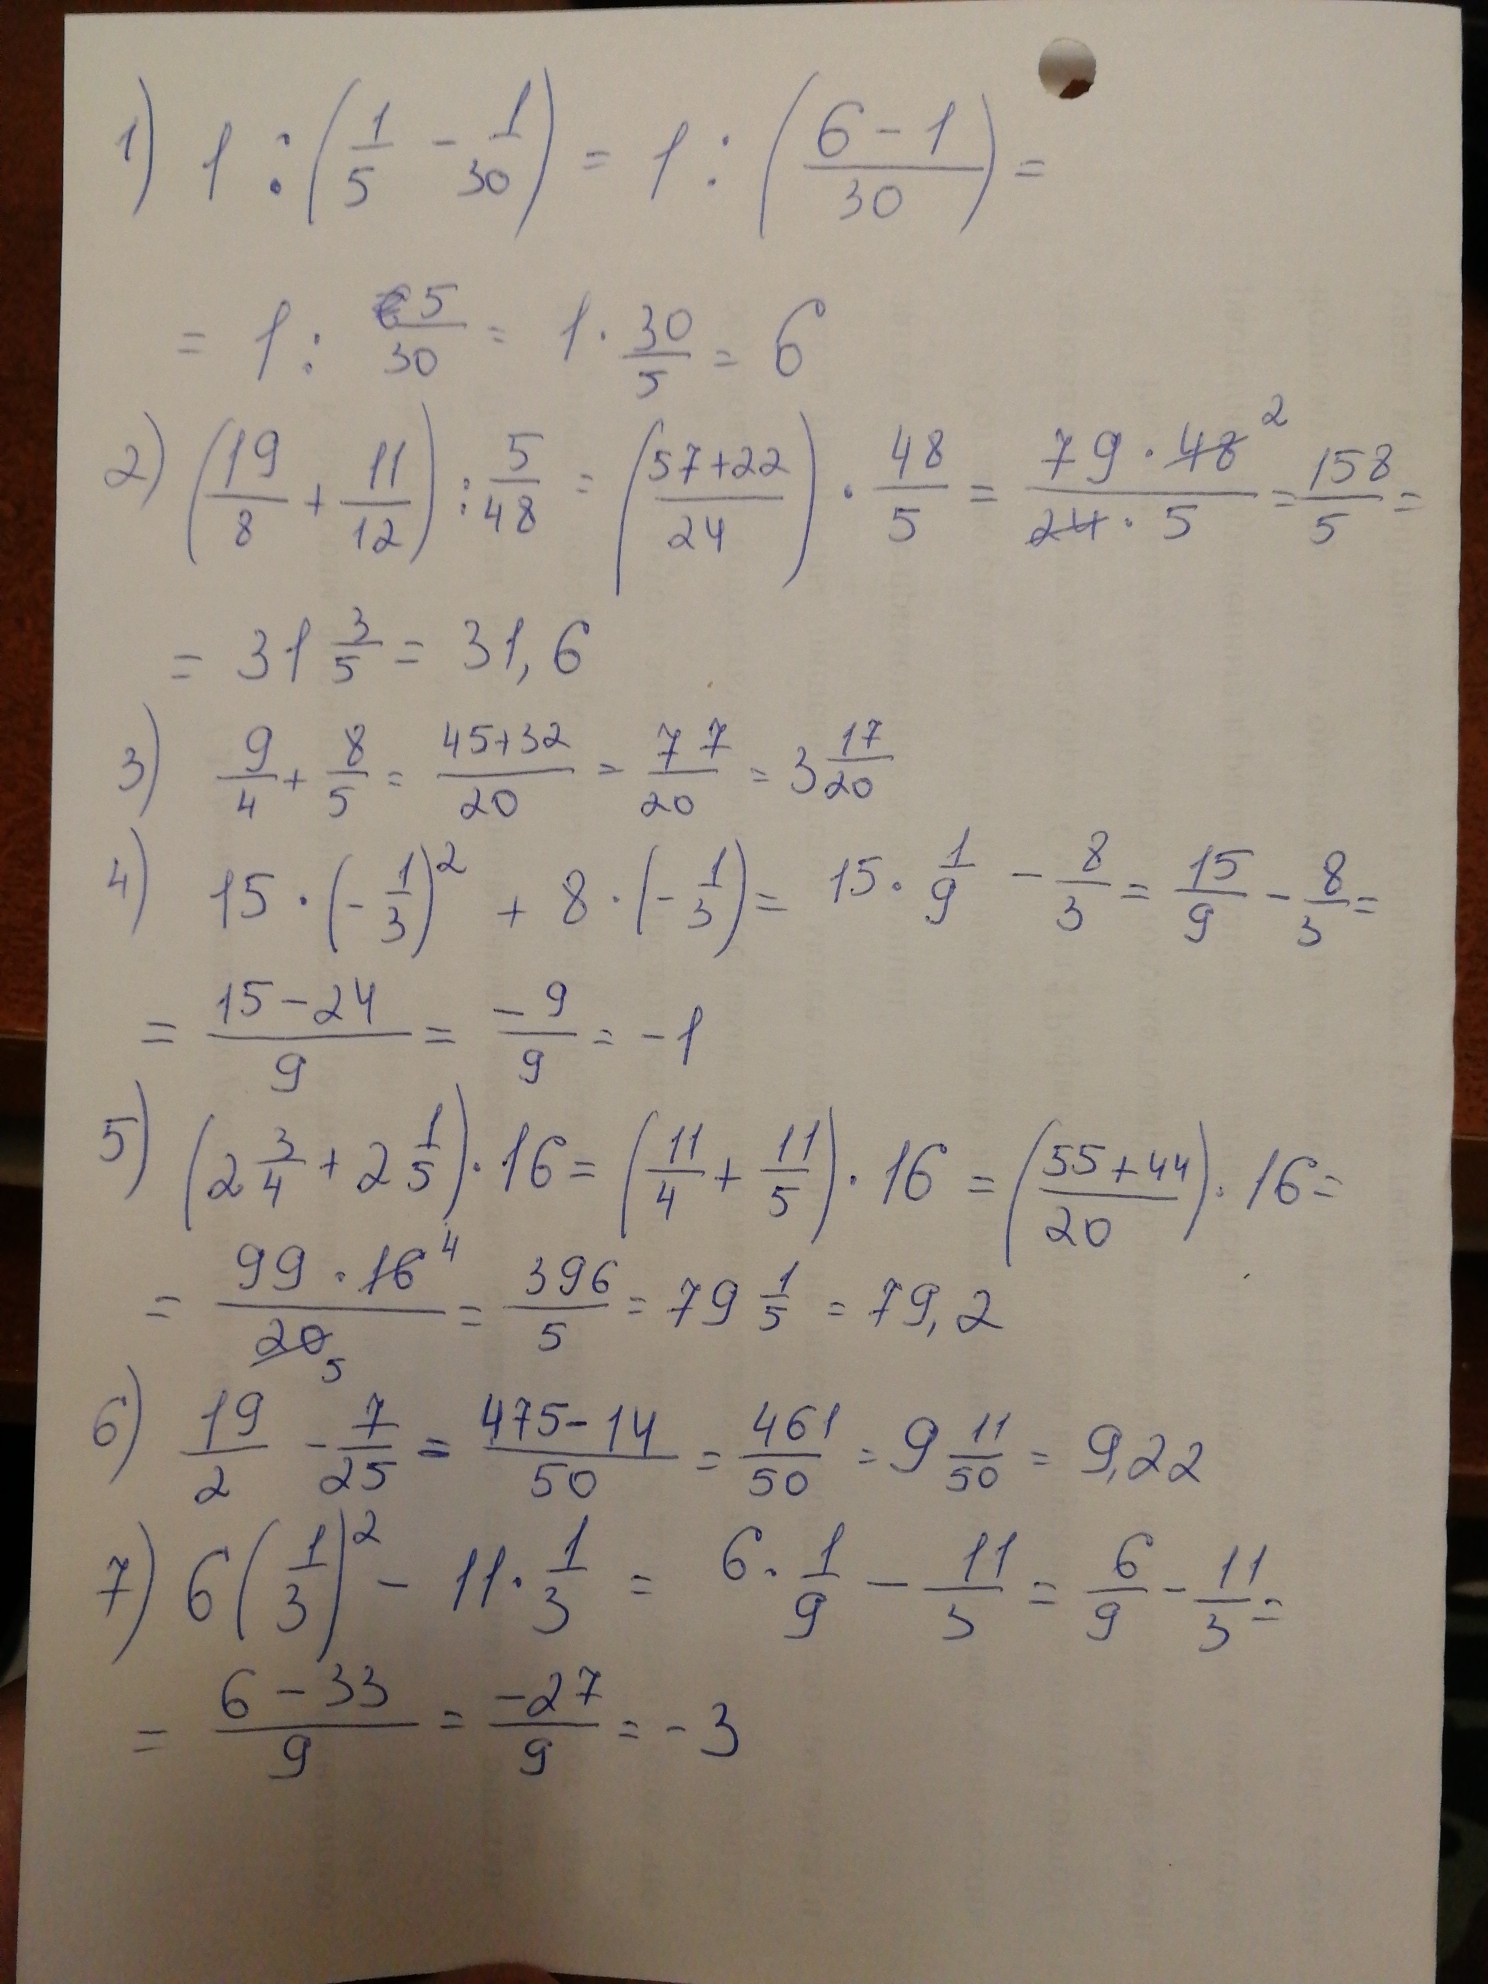 1) 1 : (1/5 - 1/30) = 1 : ((6-1)/30) =
= 1 : 5/30 = 1 · 30/5 = 6
2) (19/8 + 11/12) : 5/48 = ((57+22)/24) · 48/5 = (79 · 48 2)/(24 · 5) = 158/5 =
= 31 3/5 = 31,6
3) 9/4 + 8/5 = (45+32)/20 = 77/20 = 3 17/20
4) 15 · (-1/3)² + 8 · (-1/3) = 15 · 1/9 - 8/3 = 15/9 - 8/3 =
= (15-24)/9 = -9/9 = -1
5) (2 3/4 + 2 1/5) · 16 = (11/4 + 11/5) · 16 = ((55+44)/20) · 16 =
= (99 · 16 4)/(20 5) = 396/5 = 79 1/5 = 79,2
6) 19/2 - 7/25 = (475-14)/50 = 461/50 = 9 11/50 = 9,22
7) 6(1/3)² - 11 · 1/3 = 6 · 1/9 - 11/3 = 6/9 - 11/3 =
= (6-33)/9 = -27/9 = -3